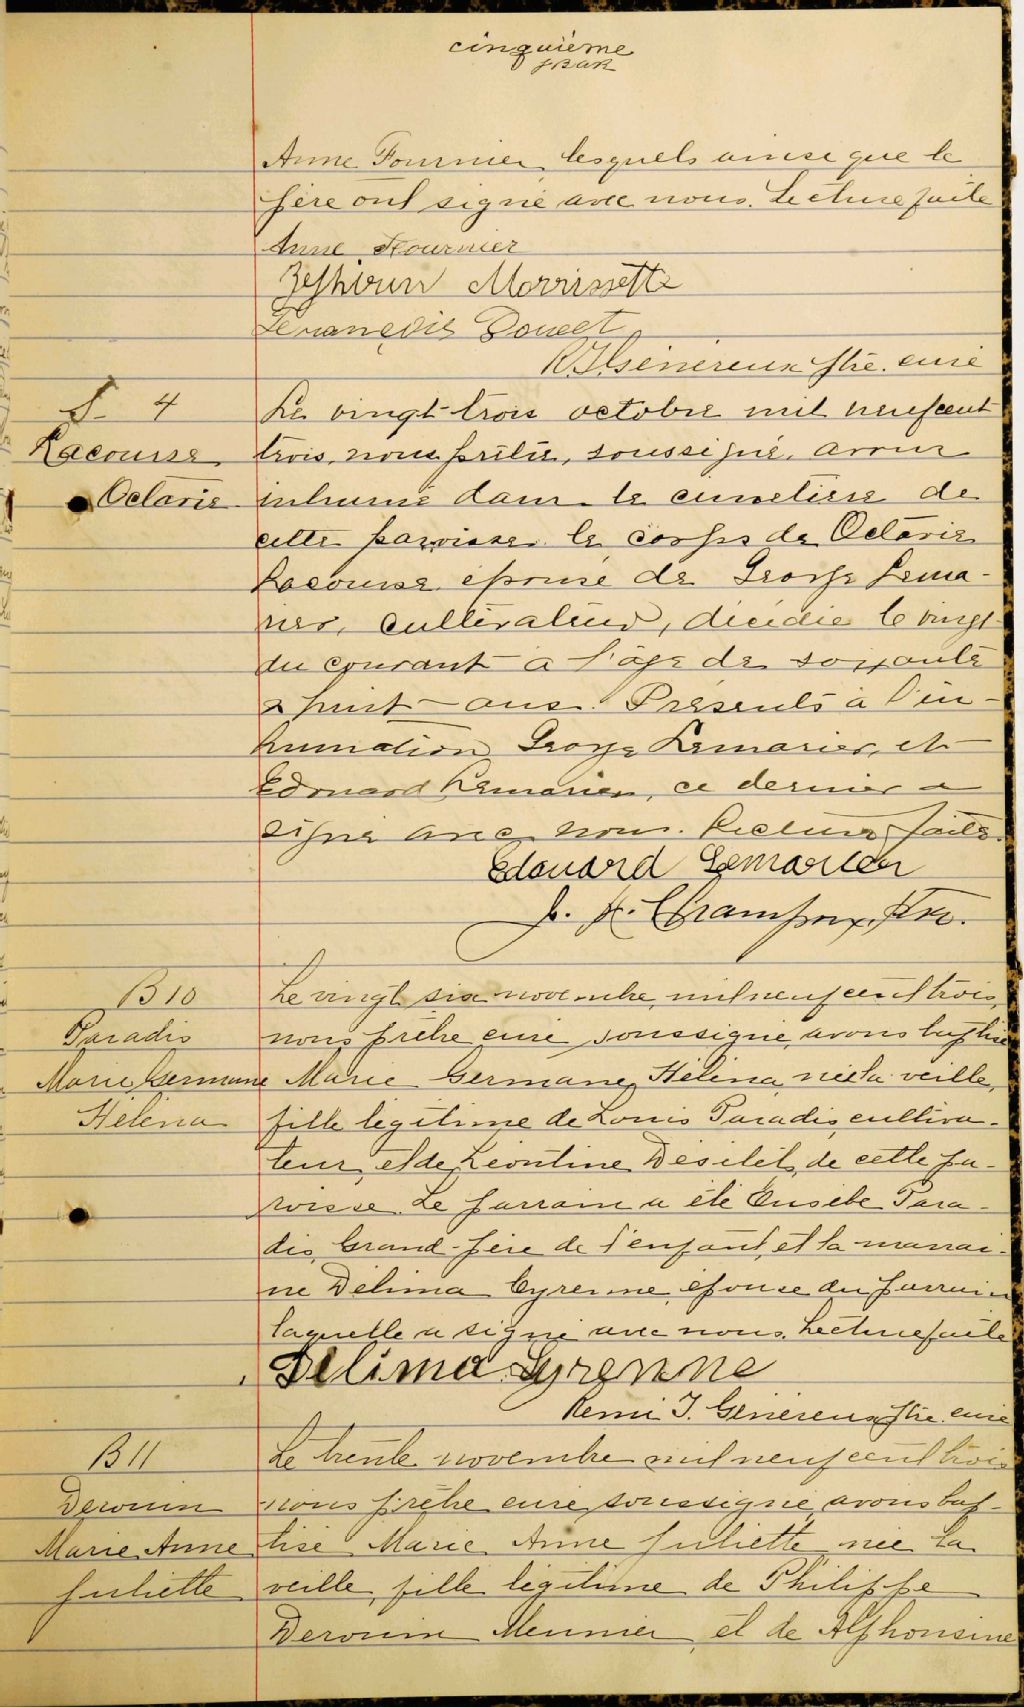 cinquième
Anne Fournier lesquels ainsi que le
père ont signé avec nous. Lecture faite
Anne Fournier
Zephirin Morrissette
François Doucet
R. J. Généreux Ptre. curé
S. 4
Le vingt-trois octobre mil neuf cent
Lacourse
trois, nous prêtre, soussigné, avons
Octavie
inhumé dans le cimetière de
cette paroisse le corps de Octavie
Lacourse épouse de George Lema-
rier, cultivateur, décédée le vingt
du courant à l'âge de soixante
& huit ans. Présents à l'in-
humation George Lemarier, et
Edouard Lemarier, ce dernier a
signé avec nous. Lecture faite.
Edouard Lemarier
J. H. Champoux, Ptre.
B 10
Le vingt six novembre mil neuf cent trois,
Paradis
nous prêtre curé soussigné, avons baptisé
Marie Germane
Marie Germane Hélèna, née la veille,
Hélèna
fille légitime de Louis Paradis, cultiva-
teur, et de Léontine Désilets, de cette pa-
roisse. Le parrain a été Eusèbe Para-
dis, Grand-père de l'enfant, et la marrai-
ne Délima Cyrenne, épouse du parrain
laquelle a signé avec nous. Lecture faite
Délima Syrenne
Remi J. Généreux Ptre. curé
B 11
Le trente novembre mil neuf cent trois
Derouin
nous prêtre curé soussigné, avons bap-
Marie Anne
tisé Marie Anne Juliette née la
Juliette
veille, fille légitime de Philippe
Derouin Meunier, et de Alphonsine